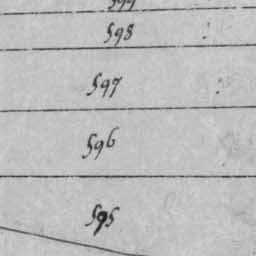 598
597
596
595